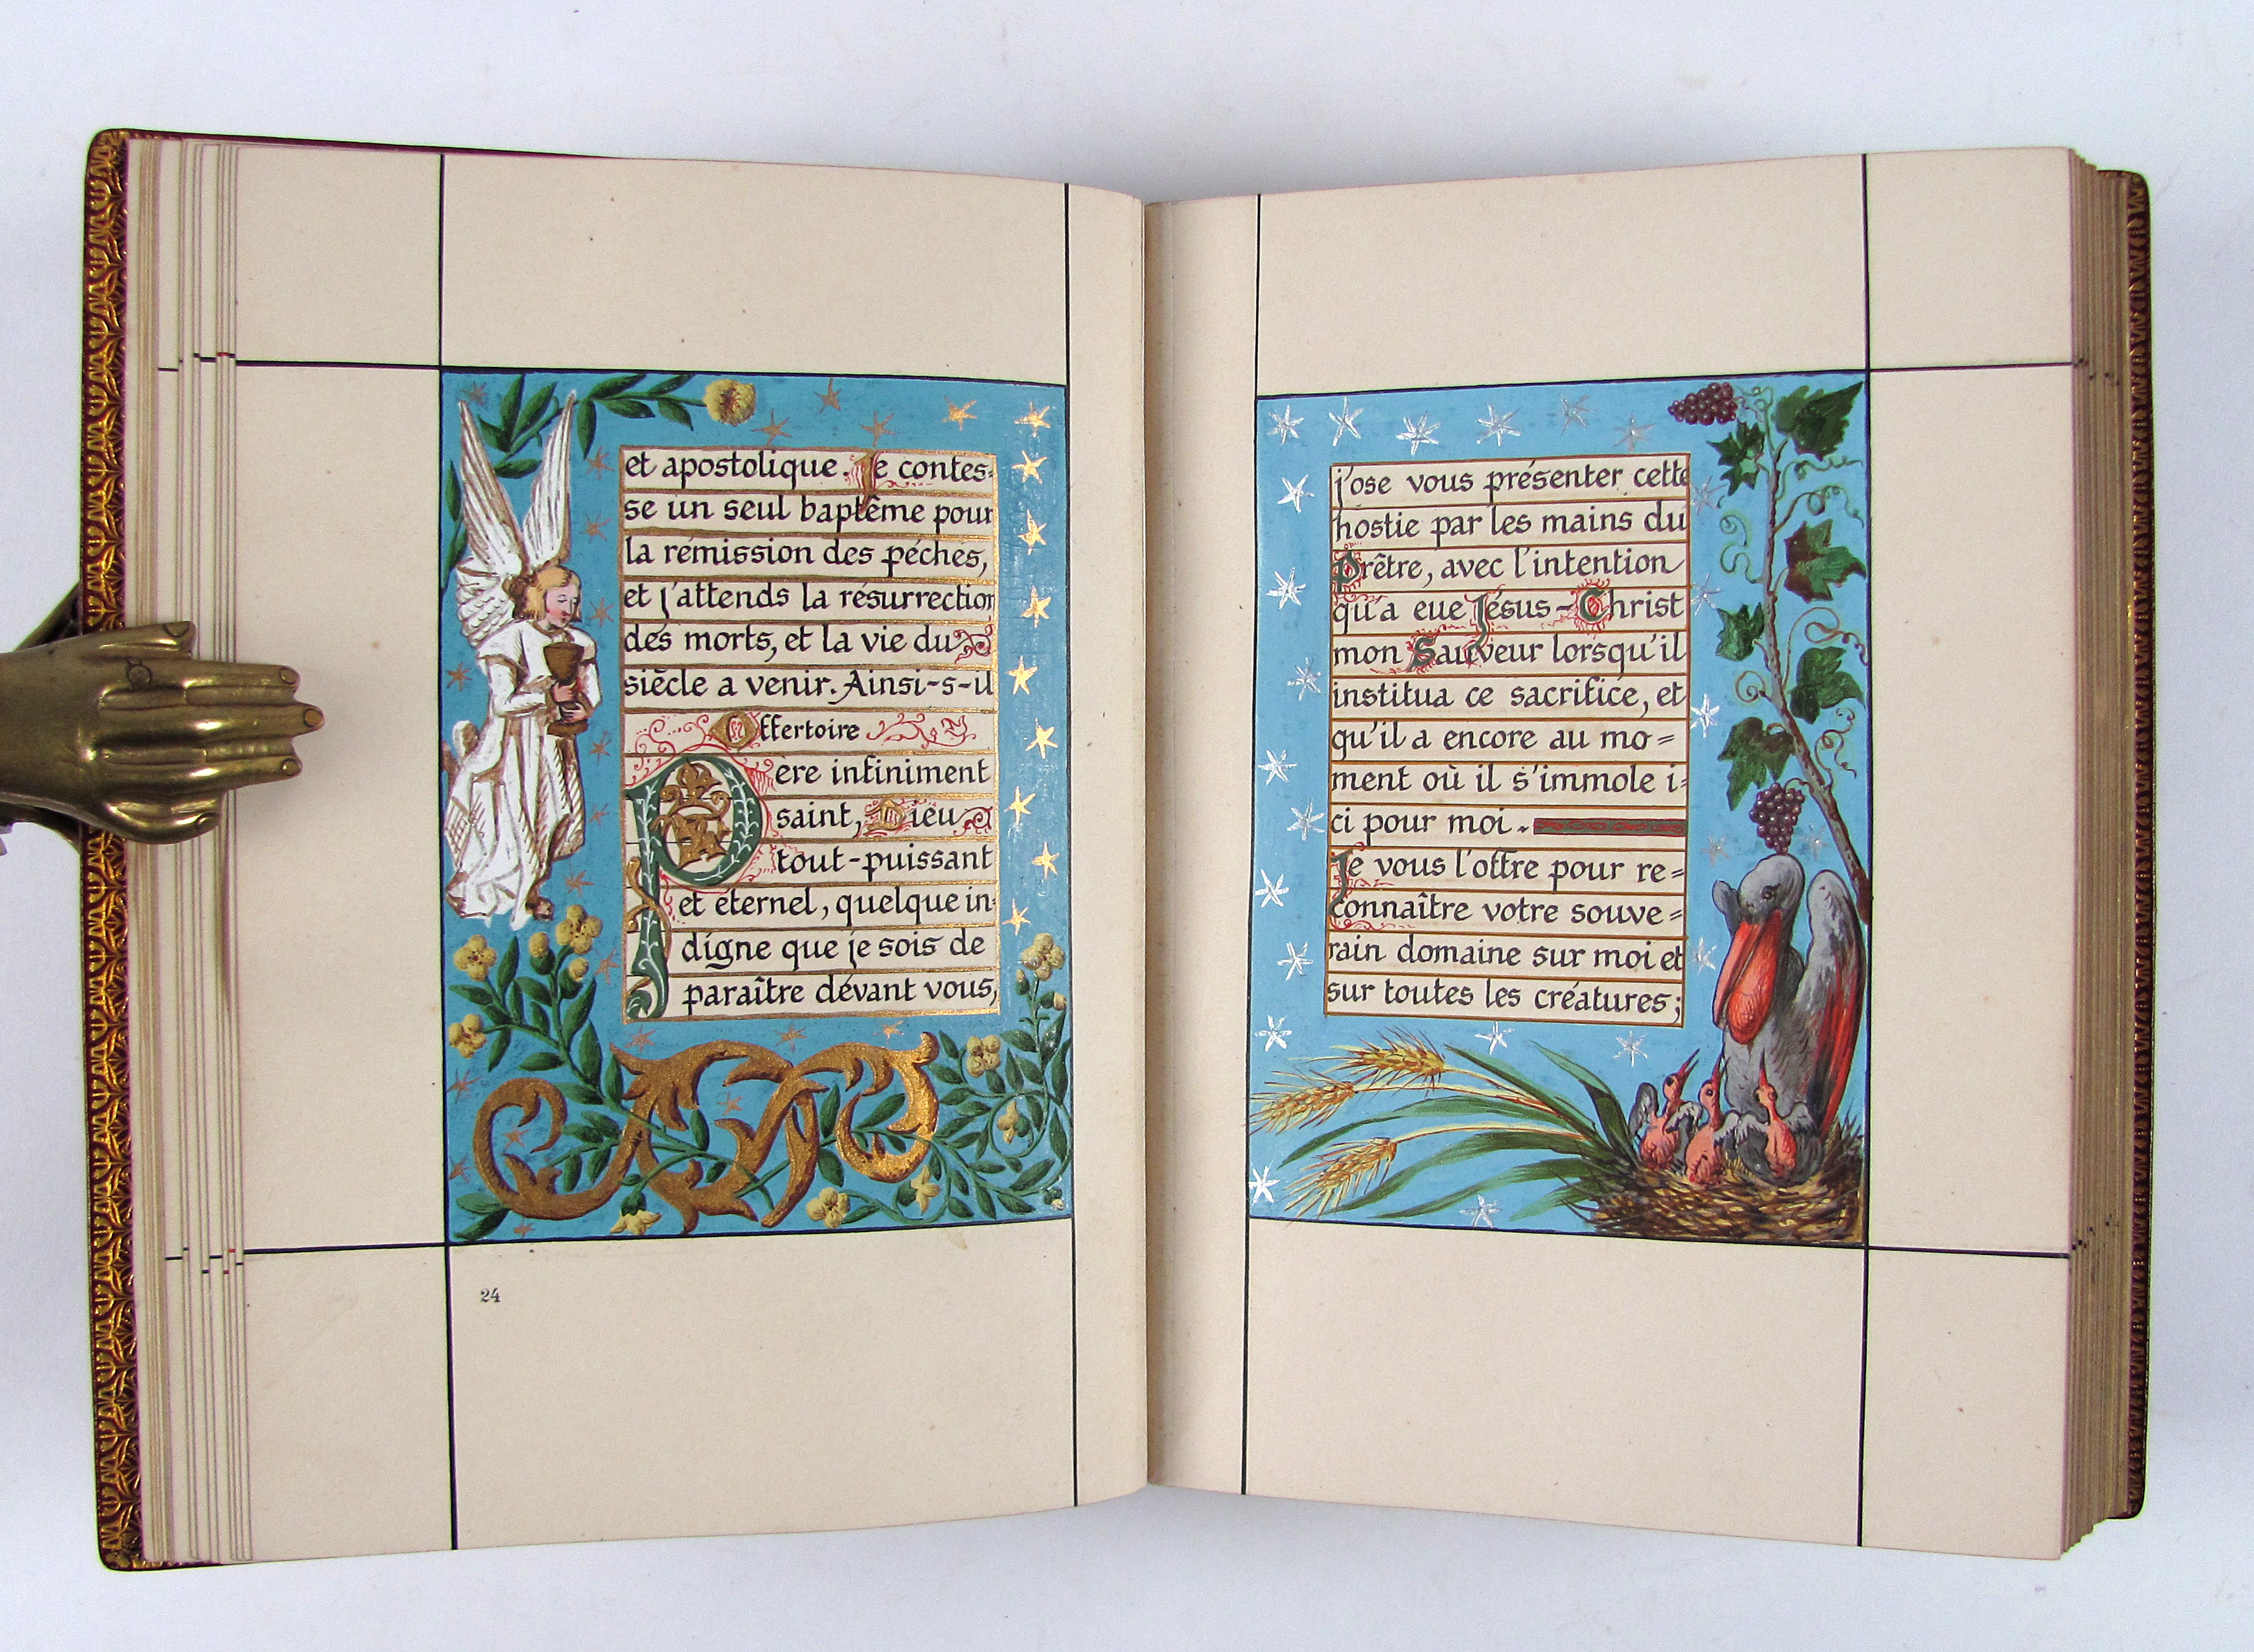 et apostolique. Je contes=
se un seul baptême pour
la rémission des péchés,
et j'attends la résurrection
des morts, et la vie du
siēcle a venir. Ainsi-s-il
Offertoire
Père infiniment
saint, Dieu
tout-puissant
et éternel, quelque in=
digne que je sois de
paraître dévant vous,
24
j'ose vous présenter cette
hostie par les mains du
Prêtre, avec l'intention
qu'a eue Jésus-Christ
mon Sauveur lorsqu'il
institua ce sacrifice, et
qu'il a encore au mo=
ment où il s'immole i=
ci pour moi.
Je vous l'offre pour re=
connaître votre souve=
rain domaine sur moi et
sur toutes les créatures;